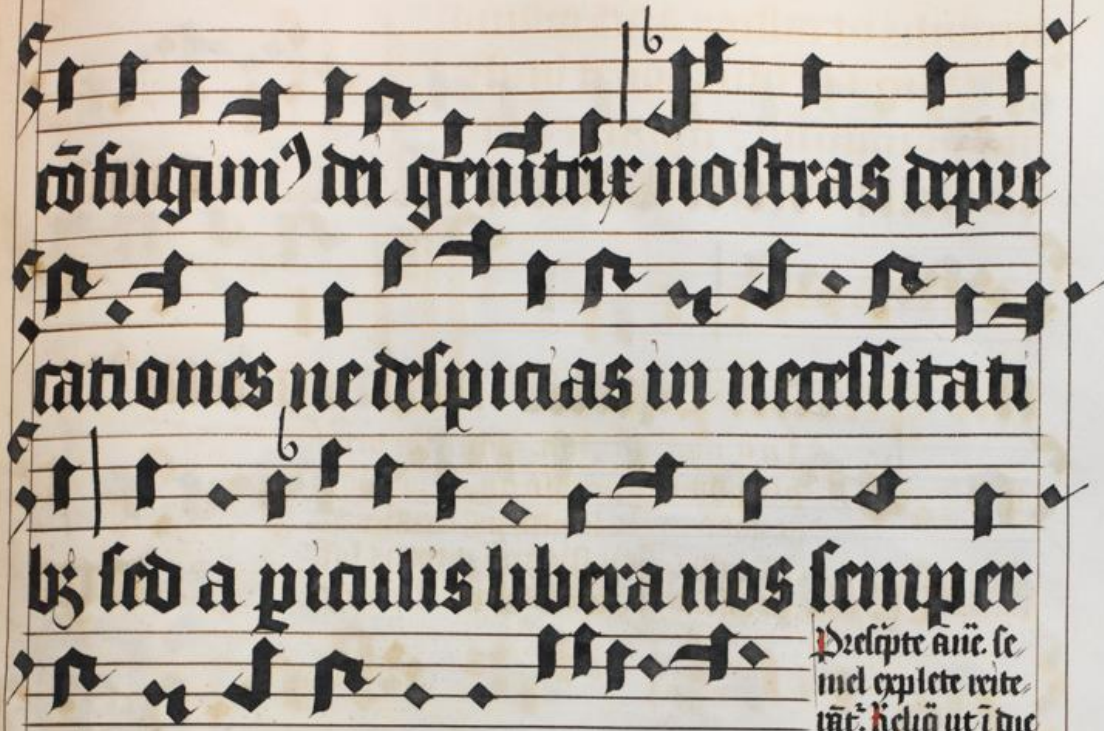 cōfugim⁹ dei genitrix nostras depre
cationes ne despicias in necessitati
bꝫ sed a ꝑiculis libera nos semper
Prescͥpte añe. se
mel explete reite⸗
ut ī die